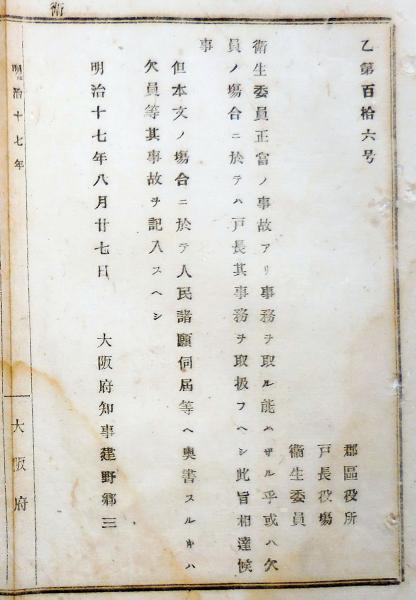 衛
乙第百拾六号
郡區役所
戸長役塲
衛生委員
衛生委員正當ノ事故アリ事務ヲ取ル能ハサル乎或ハ欠
員ノ塲合ニ於テハ戸長其事務ヲ取扱フヘシ此旨相達候
事
但本文ノ塲合ニ於テ人民諸願伺屆等ヘ奥書スルキハ
欠員等其事故ヲ記入スヘシ
明治十七年八月廿七日
大阪府知事建野郷三
明治十七年
大阪府